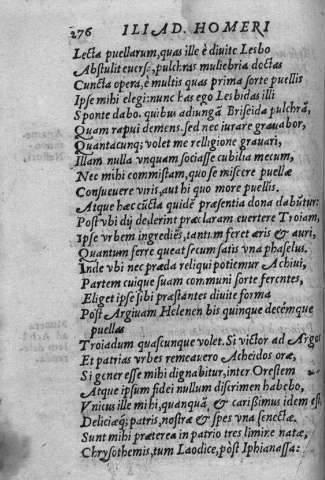 276 ILIAD. HOMERI
Lecta puellarum, quas ille è diuite Lesbo
Abstulit euersę, pulchras muliebria doctas
Cuncta opera, è multis quas prima sorte puellis
Ipse mihi elegi: nunc has ego Lesbidas illi
Sponte dabo. quibus adiungā Briseida pulchrā,
Quam rapui demens. sed nec iurare grauabor,
Quantacunq; volet me religione grauari,
Illam nulla vnquam sociasse cubilia mecum,
Nec mihi commistam, quo se miscere puellæ
Consueuere viris, aut hi quo more puellis.
Atque hæc cūcta quidē præsentia dona dabūtur:
Post vbi dij dederint præclaram euertere Troiam,
Ipse vrbem ingrediēs, tantum feret æris & auri,
Quantum ferre queat secum satis vna phaselus.
Inde vbi nec præda reliqui potiemur Achiui,
Partem cuique suam communi sorte ferentes,
Eliget ipse sibi præstantes diuite forma
Post Argiuam Helenen bis quinque decémque
puellas
Troiadum quascunque volet. Si victor ad Argos
Et patrias vrbes remeauero Acheidos oræ,
Si gener esse mihi dignabitur, inter Orestem
Atque ipsum fidei nullum discrimen habebo,
Vnicus ille mihi, quanquā & carißimus idem est,
Deliciæq; patris, nostræ & spes vna senectæ.
Sunt mihi præterea in patrio tres limine natæ,
Chrysothemis, tum Laodice, pòst Iphianassa: